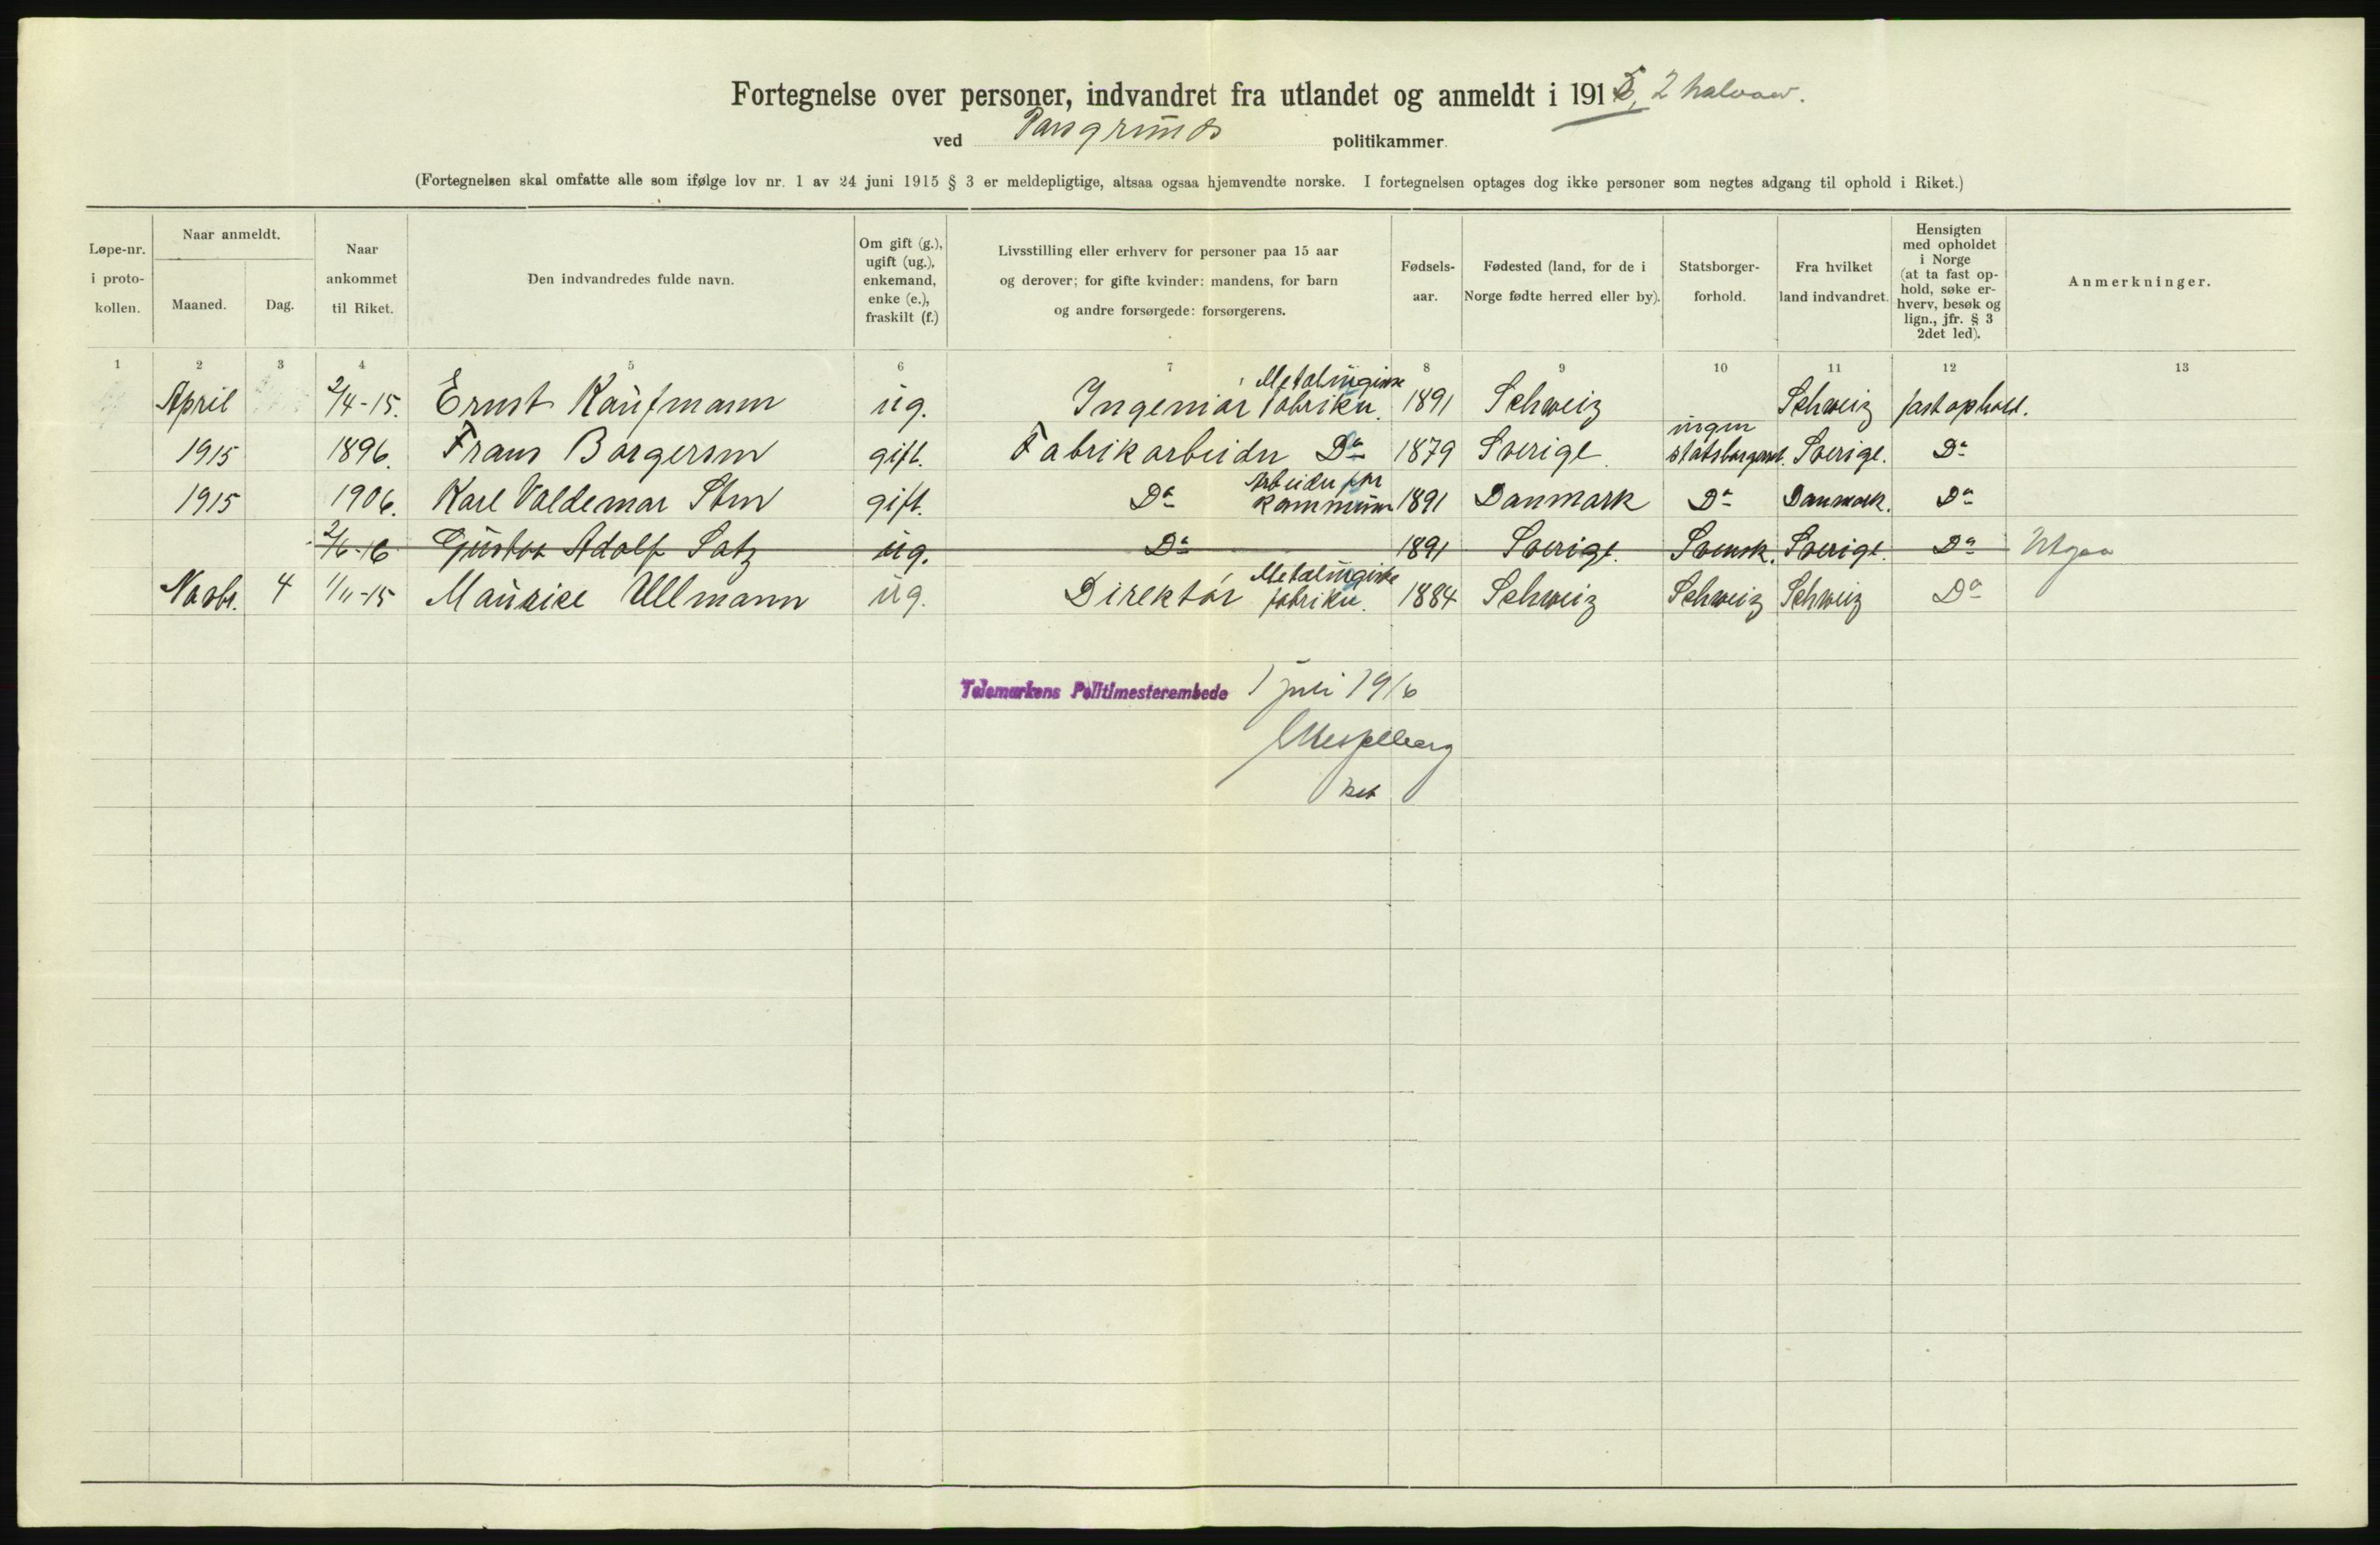 Fortegnelse over personer, indvandret fra utlandet og anmeldt i 1915, 2 halvaar.
ved Porsgrunds politikammer.
(Fortegnelsen skal omfatte alle som ifølge lov nr. 1 av 24 juni 1915 § 3 er meldepligtige, altsaa ogsaa hjemvendte norske. I fortegnelsen optages dog ikke personer som negtes adgang til ophold i Riket.)
Løpe-nr. i proto- kollen.
Naar anmeldt.
Maaned.
Dag.
Naar ankommet til Riket.
Den indvandredes fulde navn.
Om gift (g.), ugift (ug.), enkemand, enke (e.), fraskilt (f.)
Livsstilling eller erhverv for personer paa 15 aar
og derover; for gifte kvinder: mandens, for barn
og andre forsørgede: forsørgerens.
Fødsels- aar.
Fødested (land, for de i Norge fødte herred eller by).
Statsborger- forhold.
Fra hvilket land indvandret.
Hensigten med opholdet i Norge (at ta fast op- hold, søke er- hverv, besøk og lign., jfr. § 3 2det led).
Anmerkninger.
1 2 3 4 5 6 7 8 9 10 11 12 13
April 2/4-15. Ernst Kaufmann ug. Ingeniør Metalurgiske fabriker. 1891 Schweiz Schweiz fast ophold.
1915 1896. Frans Borgersen gift. Fabrikarbeider Do 1879 Sverige. ingen statsborgerret. Sverige. Do
1915 1906. Karl Valdemar Sten gift. Do Arbeider for kommunen 1891 Danmark Do Danmark. Do
2/6-16 Gustav Adolf Satz ug. Do 1891 Sverige. Svensk. Sverige. Do Utgaa
Novbr. 4 1/11-15 Maurice Ullmann ug. Direktør Metalurgiske fabriker. 1884 Schweiz Schweiz Schweiz Do
Telemarkens Politimesterembede 1 juli 1916